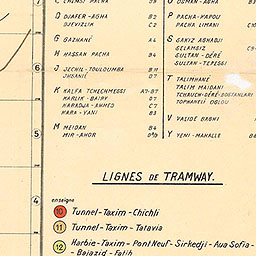 C CHIMSI PACHA
D DJAFER-AGHA B2
DJEVIZLIK C2
G GAZHANÉ A4
H HASSAN PACHA B4
J JECHIL-TOULOUMBA B11
IHSANIÉ D7
K KALFA TCHECHMESSI A7-B7
KARLIK-BAÏRY D7
KARADJA-AHMED C7
KARA-YANI B3
M MEIDAN B4
MIR-AHOR
P PACHA-KAPOU
PACHA LIMANI C10
S SAKIZ AGHADJI
GELAMSIZ
SULTAN-DÉRÉ
SULTAN-TEPESSI
T TALIMHANÉ
TALIM MAIDANI
TCHAUCH-DÉRÉ-BOSTANLARI
TOPHANELI OGLOU
V VALIDÉ BAGHI
Y YENI-MAHALLE B8
6
5
4
LIGNES DE TRAMWAY.
enseigne
10 Tunnel-Taxim-Chichli
11 Tunnel-Taxim-Tatavia
12 Harbié-Taxim-Pont Neuf-Sirkedji-Aya Sofia-
Bajazid-Fatih